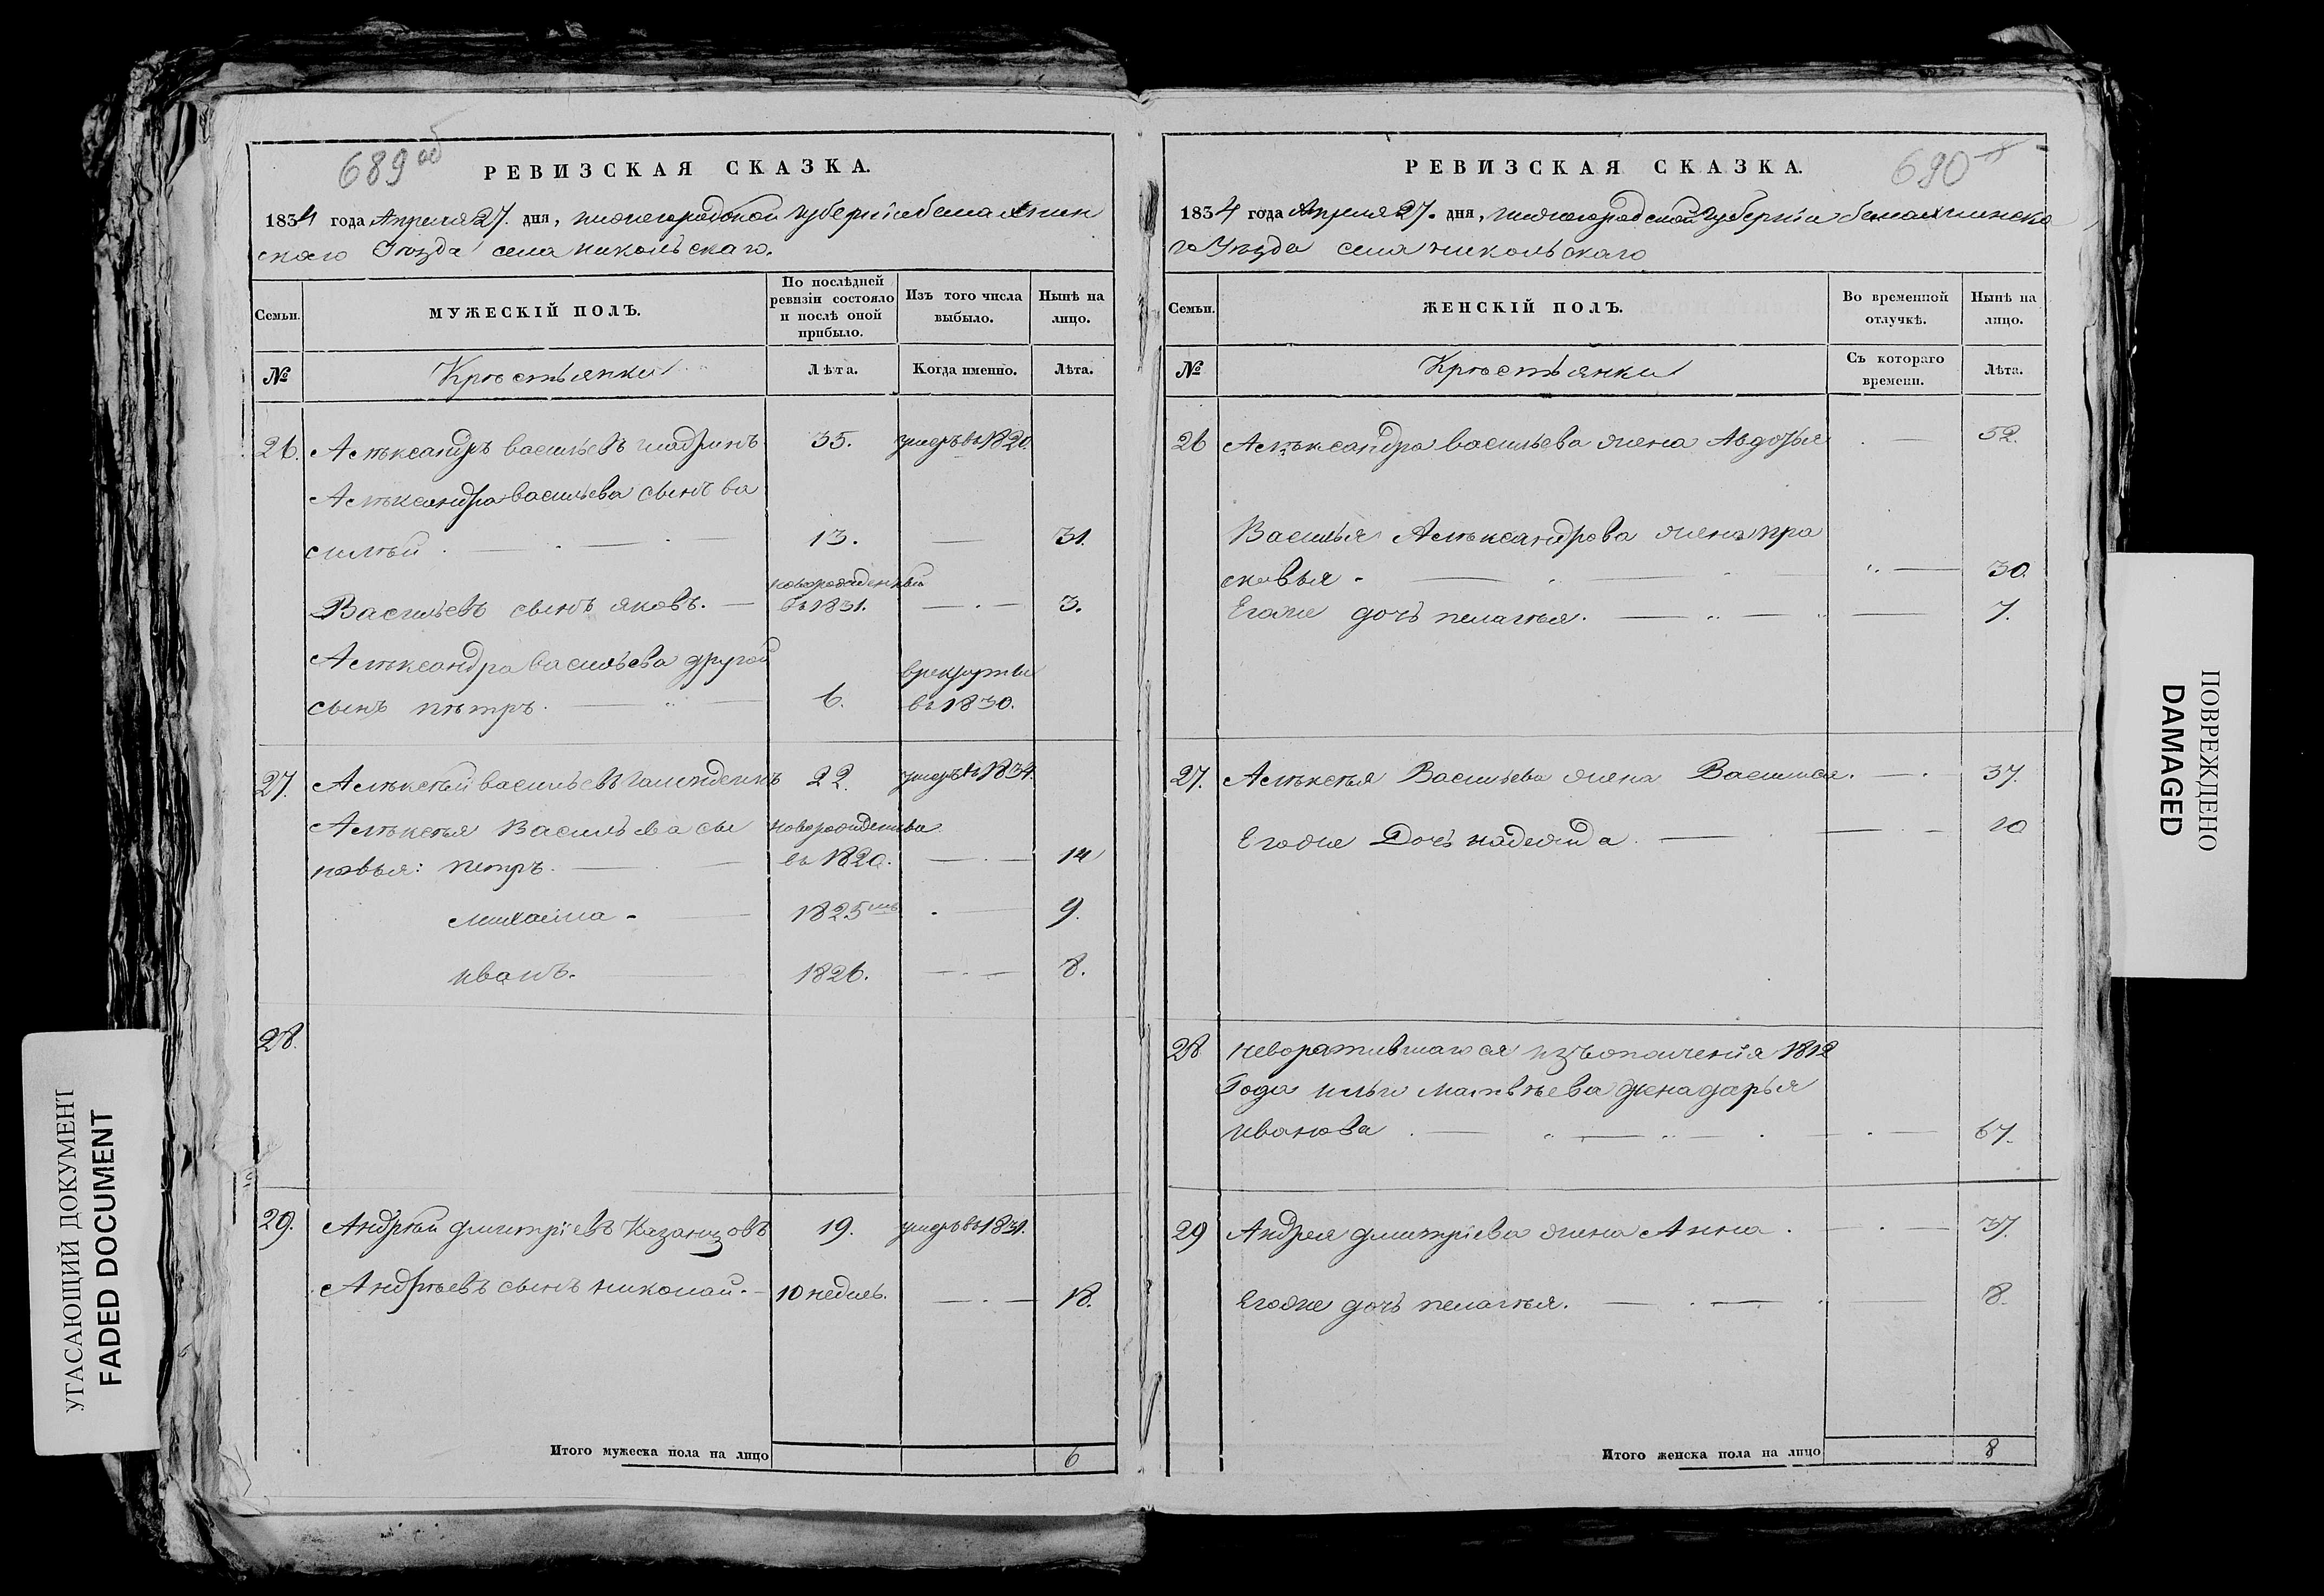 689 об
РЕВИЗСКАЯ СКАЗКА.
1834 года Апреля 27. дня, нижегородской губернiи балахнин
скаго Уѣзда села никольскаго.
Семьи.
МУЖЕСКІЙ ПОЛЪ.
По послѣдней ревизіи состояло и послѣ оной прибыло.
Изъ того числа выбыло.
Нынѣ на лицо.
№
Крѣстьянки
Лѣта.
Когда именно.
Лѣта.
26. Алѣксандръ васильевъ 35. умеръ въ 1820.
Алѣксандра васильева сынъ ва
силѣй 13. — 31.
новорожденный
Васильевъ сынъ яковъ. — въ 1831. — 3.
Алѣксандра васильева другой
врекруты
сынъ пѣтръ. — 6. въ 1830.
27. Алѣксѣй васильевъ 22. умеръ въ 1834.
Алѣксѣя Васильева сы новорожденныя
новья: петръ. — въ 1820. — 14
михайла — 1825 — 9.
иванъ. 1826. — 8.
28.
29. Андрѣй дмитріевъ Казанцовъ 19. умеръ въ 1831.
Андрѣевъ сынъ николай. — 10 недиль. — 18.
Итого мужеска пола на лицо 6
690
РЕВИЗСКАЯ СКАЗКА.
1834 года Апреля 27. дня, нижегородской губерніи балахнинска
го Уѣзда села никольскаго
Семьи.
ЖЕНСКІЙ ПОЛЪ.
Во временной отлучкѣ.
Нынѣ на лицо.
№
Крѣстьянки
Съ котораго времени.
Лѣта.
26 Алѣксандра васильева жена Авдотья — 52.
Василья Алѣксандрова жена пра
сковья — 30.
Егоже дочь пелагѣя. — 7.
27. Алѣксѣя Васильева жена Василиса. — 37.
Егоже Дочь надежида. — 10
28 неворатившагося изъополченія 1812
Года ильи матвѣева жена дарья
иванова — 67.
29 Андрея дмитріева жена Анна. — 37.
Егоже дочь пелагѣя. — 8.
Итого женска пола на лицо 8
УГАСАЮЩИЙ ДОКУМЕНТ
FADED DOCUMENT
ПОВРЕЖДЕНО
DAMAGED